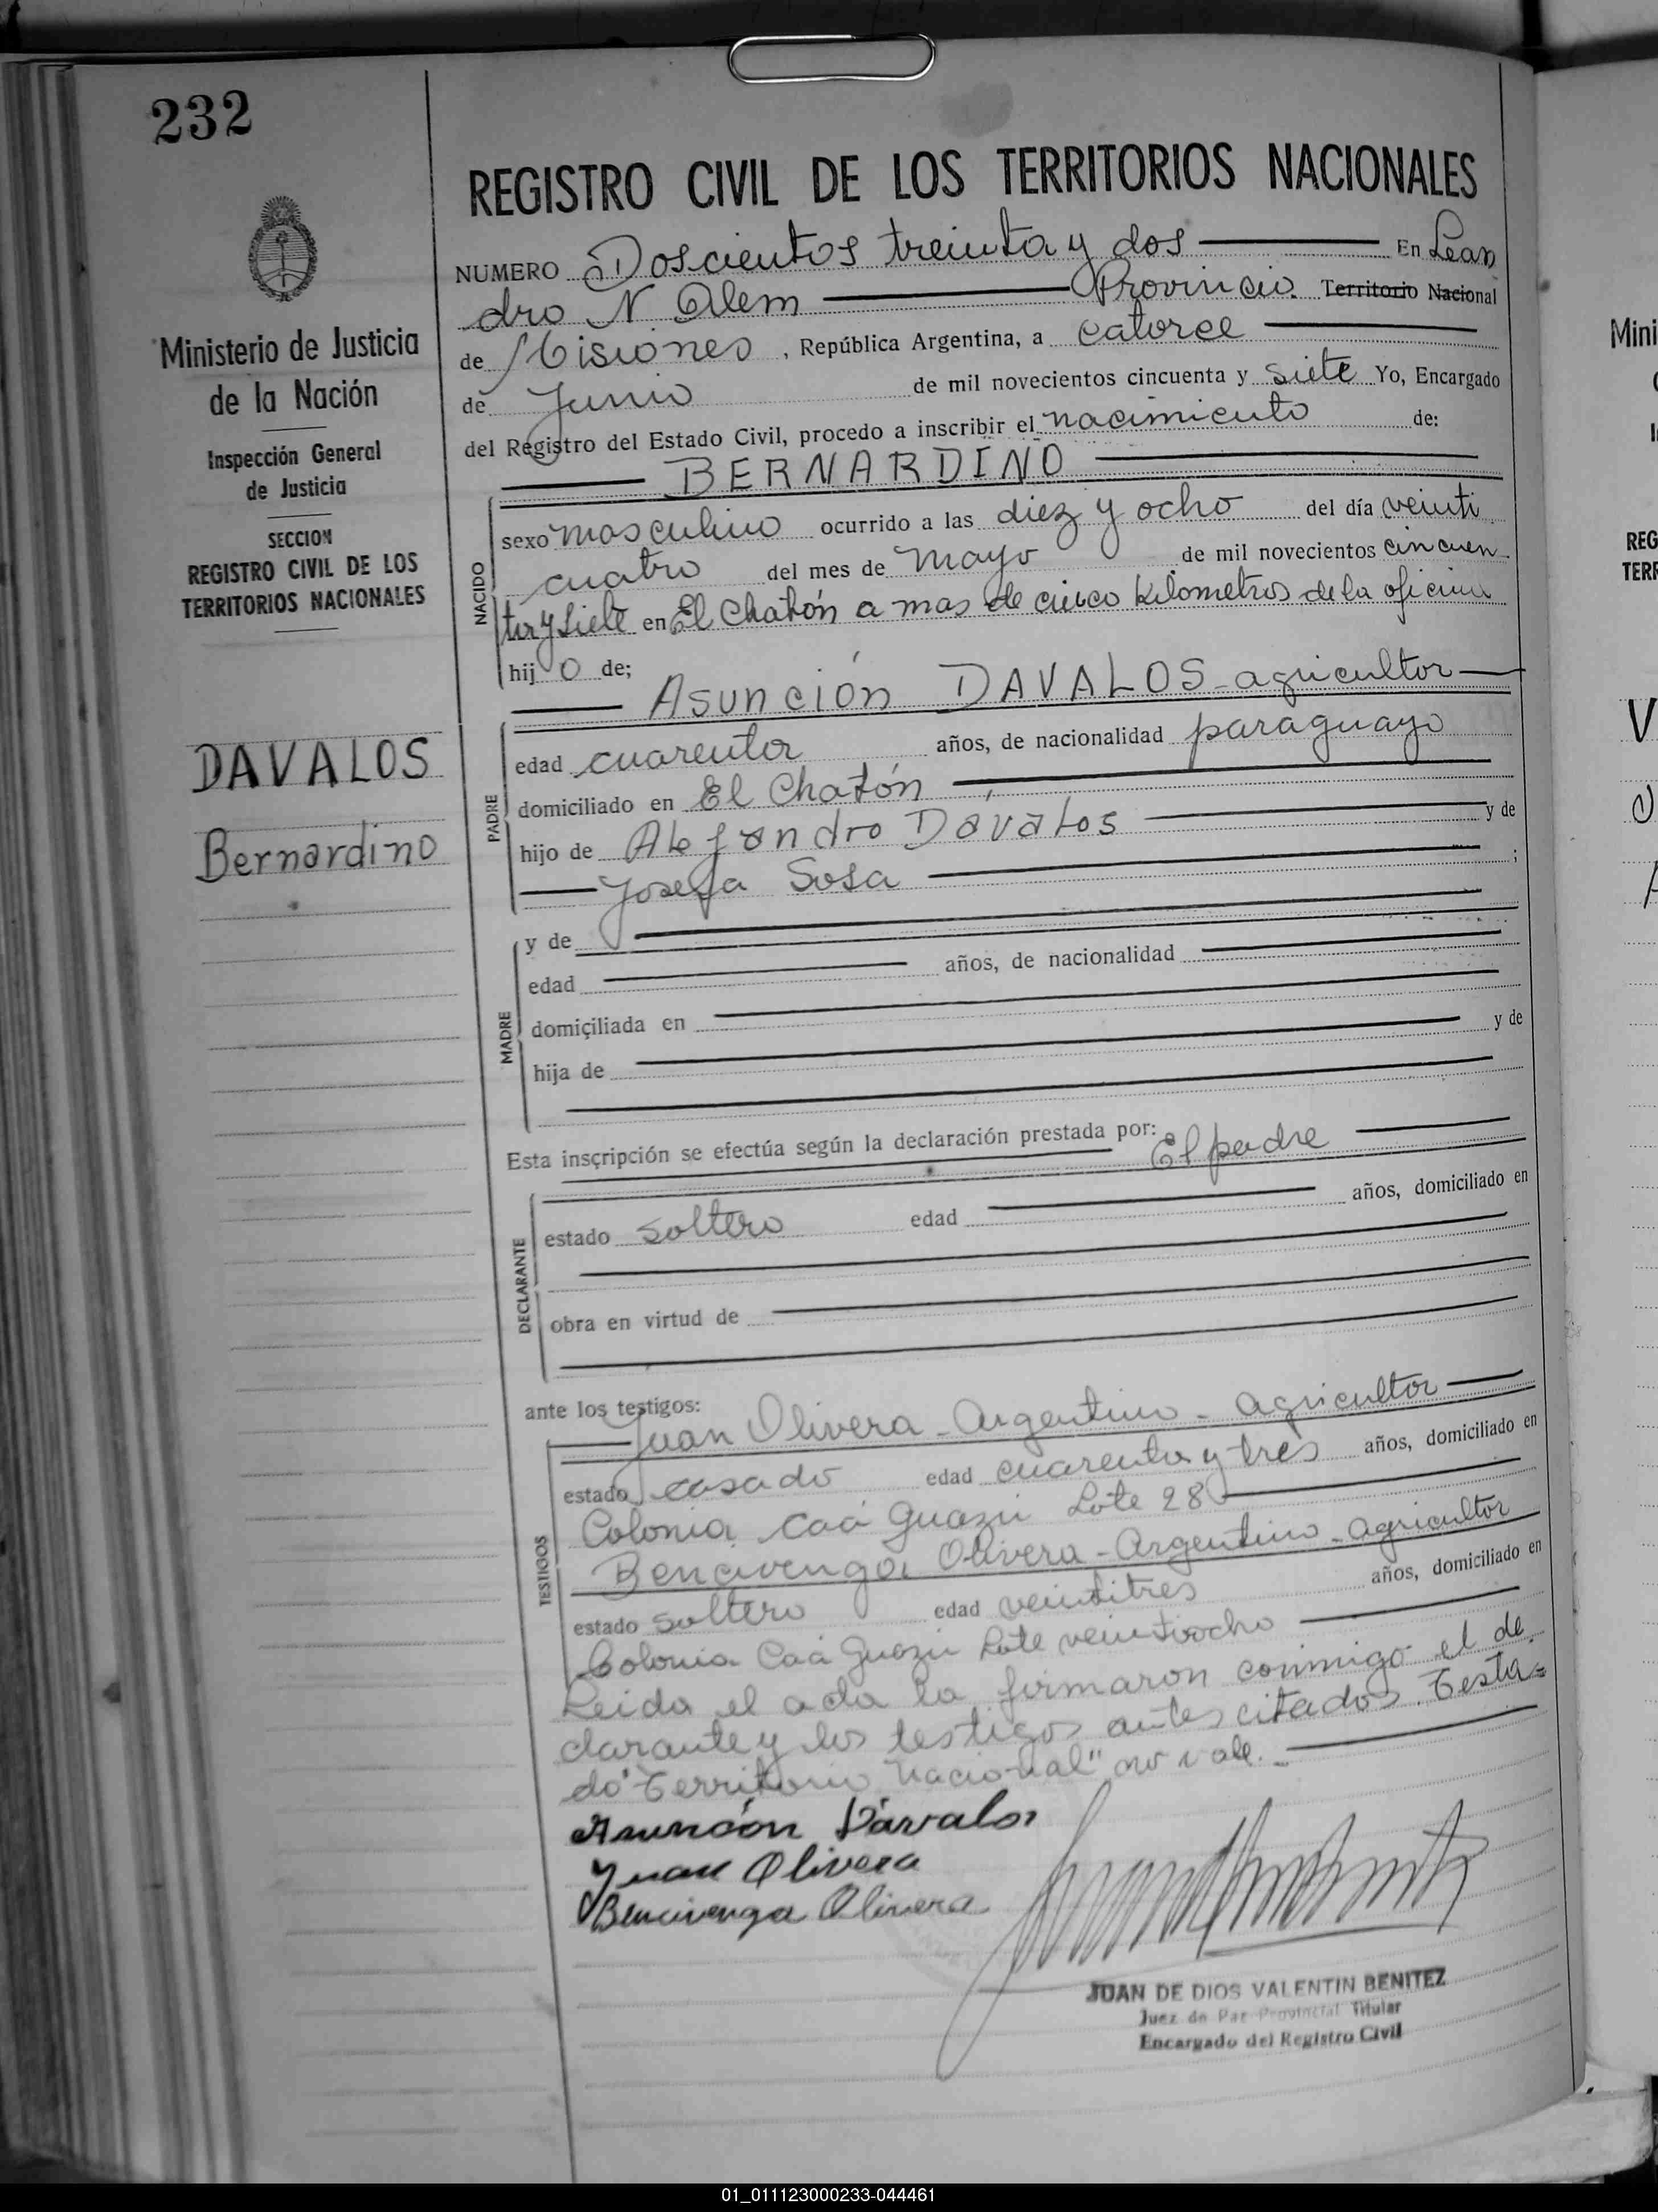 232
Ministerio de Justicia
de la Nación
Inspección General
de Justicia
SECCION
REGISTRO CIVIL DE LOS
TERRITORIOS NACIONALES
DAVALOS
Bernardino
REGISTRO CIVIL DE LOS TERRITORIOS NACIONALES
NUMERO Doscientos treinta y dos En Lean
dro N. Alem Provincia. Territorio Nacional
de Misiones, República Argentina, a catorce
de Junio de mil novecientos cincuenta y siete Yo, Encargado
del Registro del Estado Civil, procedo a inscribir el nacimiento de:
BERNARDINO
NACIDO
sexo masculino ocurrido a las diez y ocho del día veinti
cuatro del mes de mayo de mil novecientos cincuen
ta y siete en El Chatón a mas de cinco kilometros de la oficina
hijo de;
Asunción DAVALOS - agricultor
PADRE
edad cuarenta años, de nacionalidad paraguayo
domiciliado en El Chatón
hijo de Alejandro Dávalos y de
Josefa Sosa ;
MADRE
y de
edad años, de nacionalidad
domiciliada en
hija de y de
Esta inscripción se efectúa según la declaración prestada por: El padre
DECLARANTE
estado soltero edad años, domiciliado en
obra en virtud de
ante los testigos:
TESTIGOS
Juan Olivera - Argentino - agricultor
estado casado edad cuarenta y tres años, domiciliado en
Colonia Caá Guazú Lote 28
Bencivenga Olivera - Argentino - agricultor
estado soltero edad veintitres años, domiciliado en
Colonia Caá Guazú Lote veintiocho
Leida el acta la firmaron conmigo el de
clarante y los testigos antes citados. Testa=
do "Territorio Nacional" no vale.
Asunción Dávalos
Juan Olivera
Bencivenga Olivera
JUAN DE DIOS VALENTIN BENITEZ
Juez de Paz Provincial Titular
Encargado del Registro Civil
Mini
REG
TERR
01_011123000233-044461